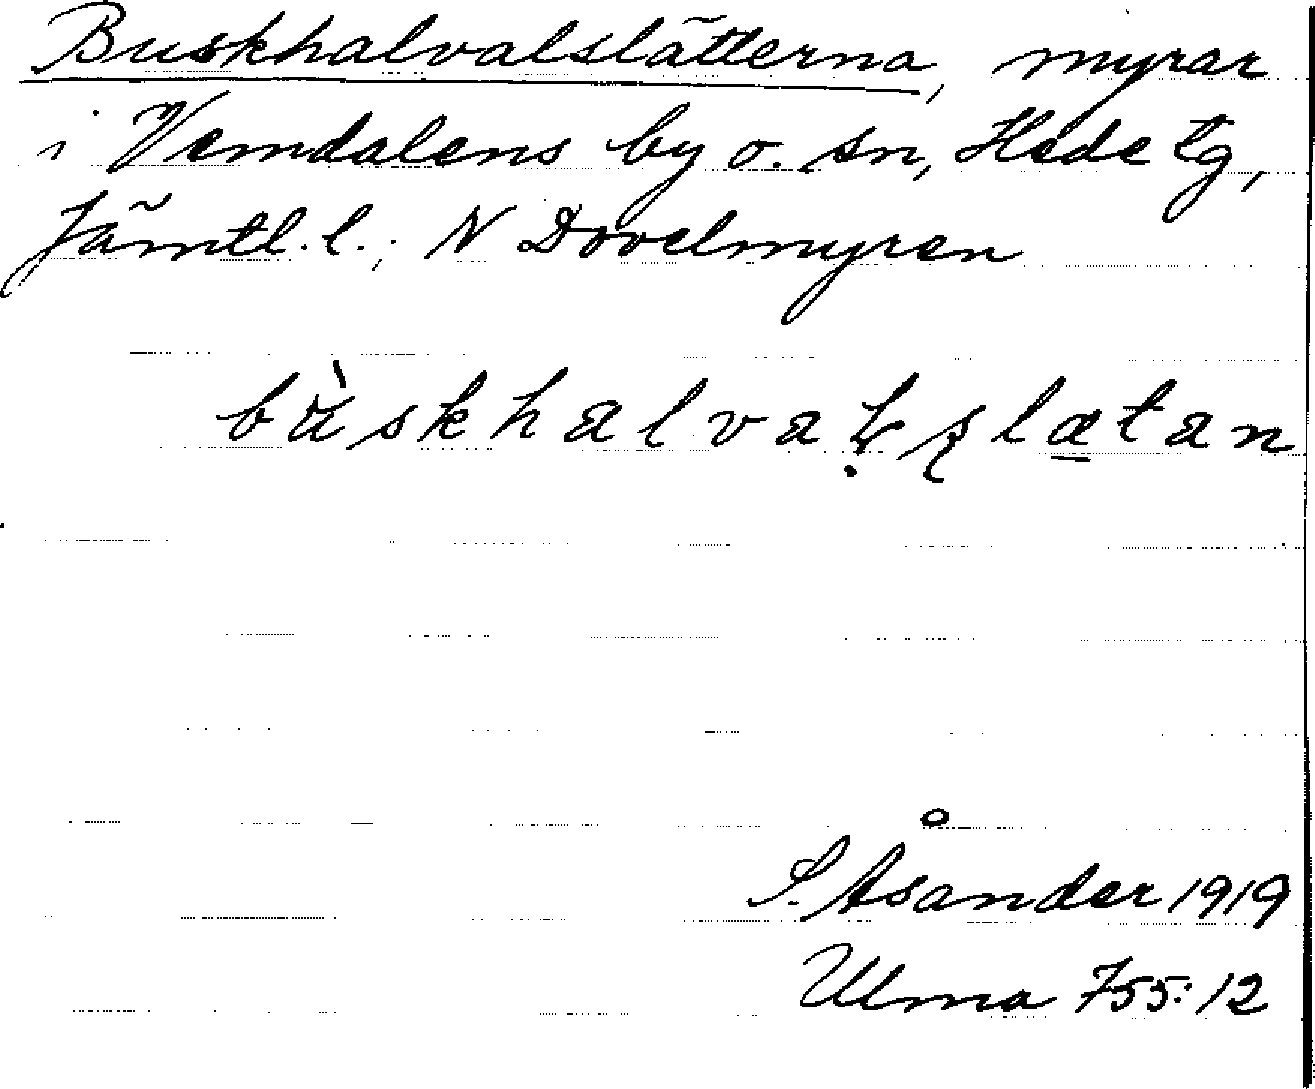 Buskhalvalslätterna, myrar
i Vemdalens by o. sn, Hede tg,
Jämtl. l.; N Dovelmyren
S. Åsander 1919
Ulma 755:12